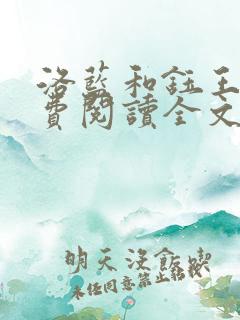 洛藍和鈺王
費閱讀全文
明天沒飯喫
未經同意禁止轉載